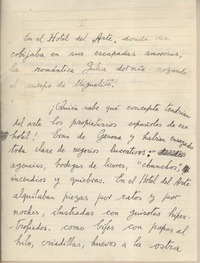 I
En el Hotel del Arte, donde me
cobijaba en sus escapadas amorosas,
la romántica Julia dormía
el cuerpo de Miguelito.
¡Quién sabe qué concepto tendrían
del arte los propietarios españoles de ese
hotel! Eran de Gerona y habían
toda clase de negocios lucrativos:
agencias, bodegas de licores, "chanchos",
incendios y quiebras. En el Hotel del Arte
alquilaban piezas por ratos y por
noches, ilustradas con guisotes hiper-
trofiados, como bifes con papas al
hilo, criadillas, huevos a la ostra